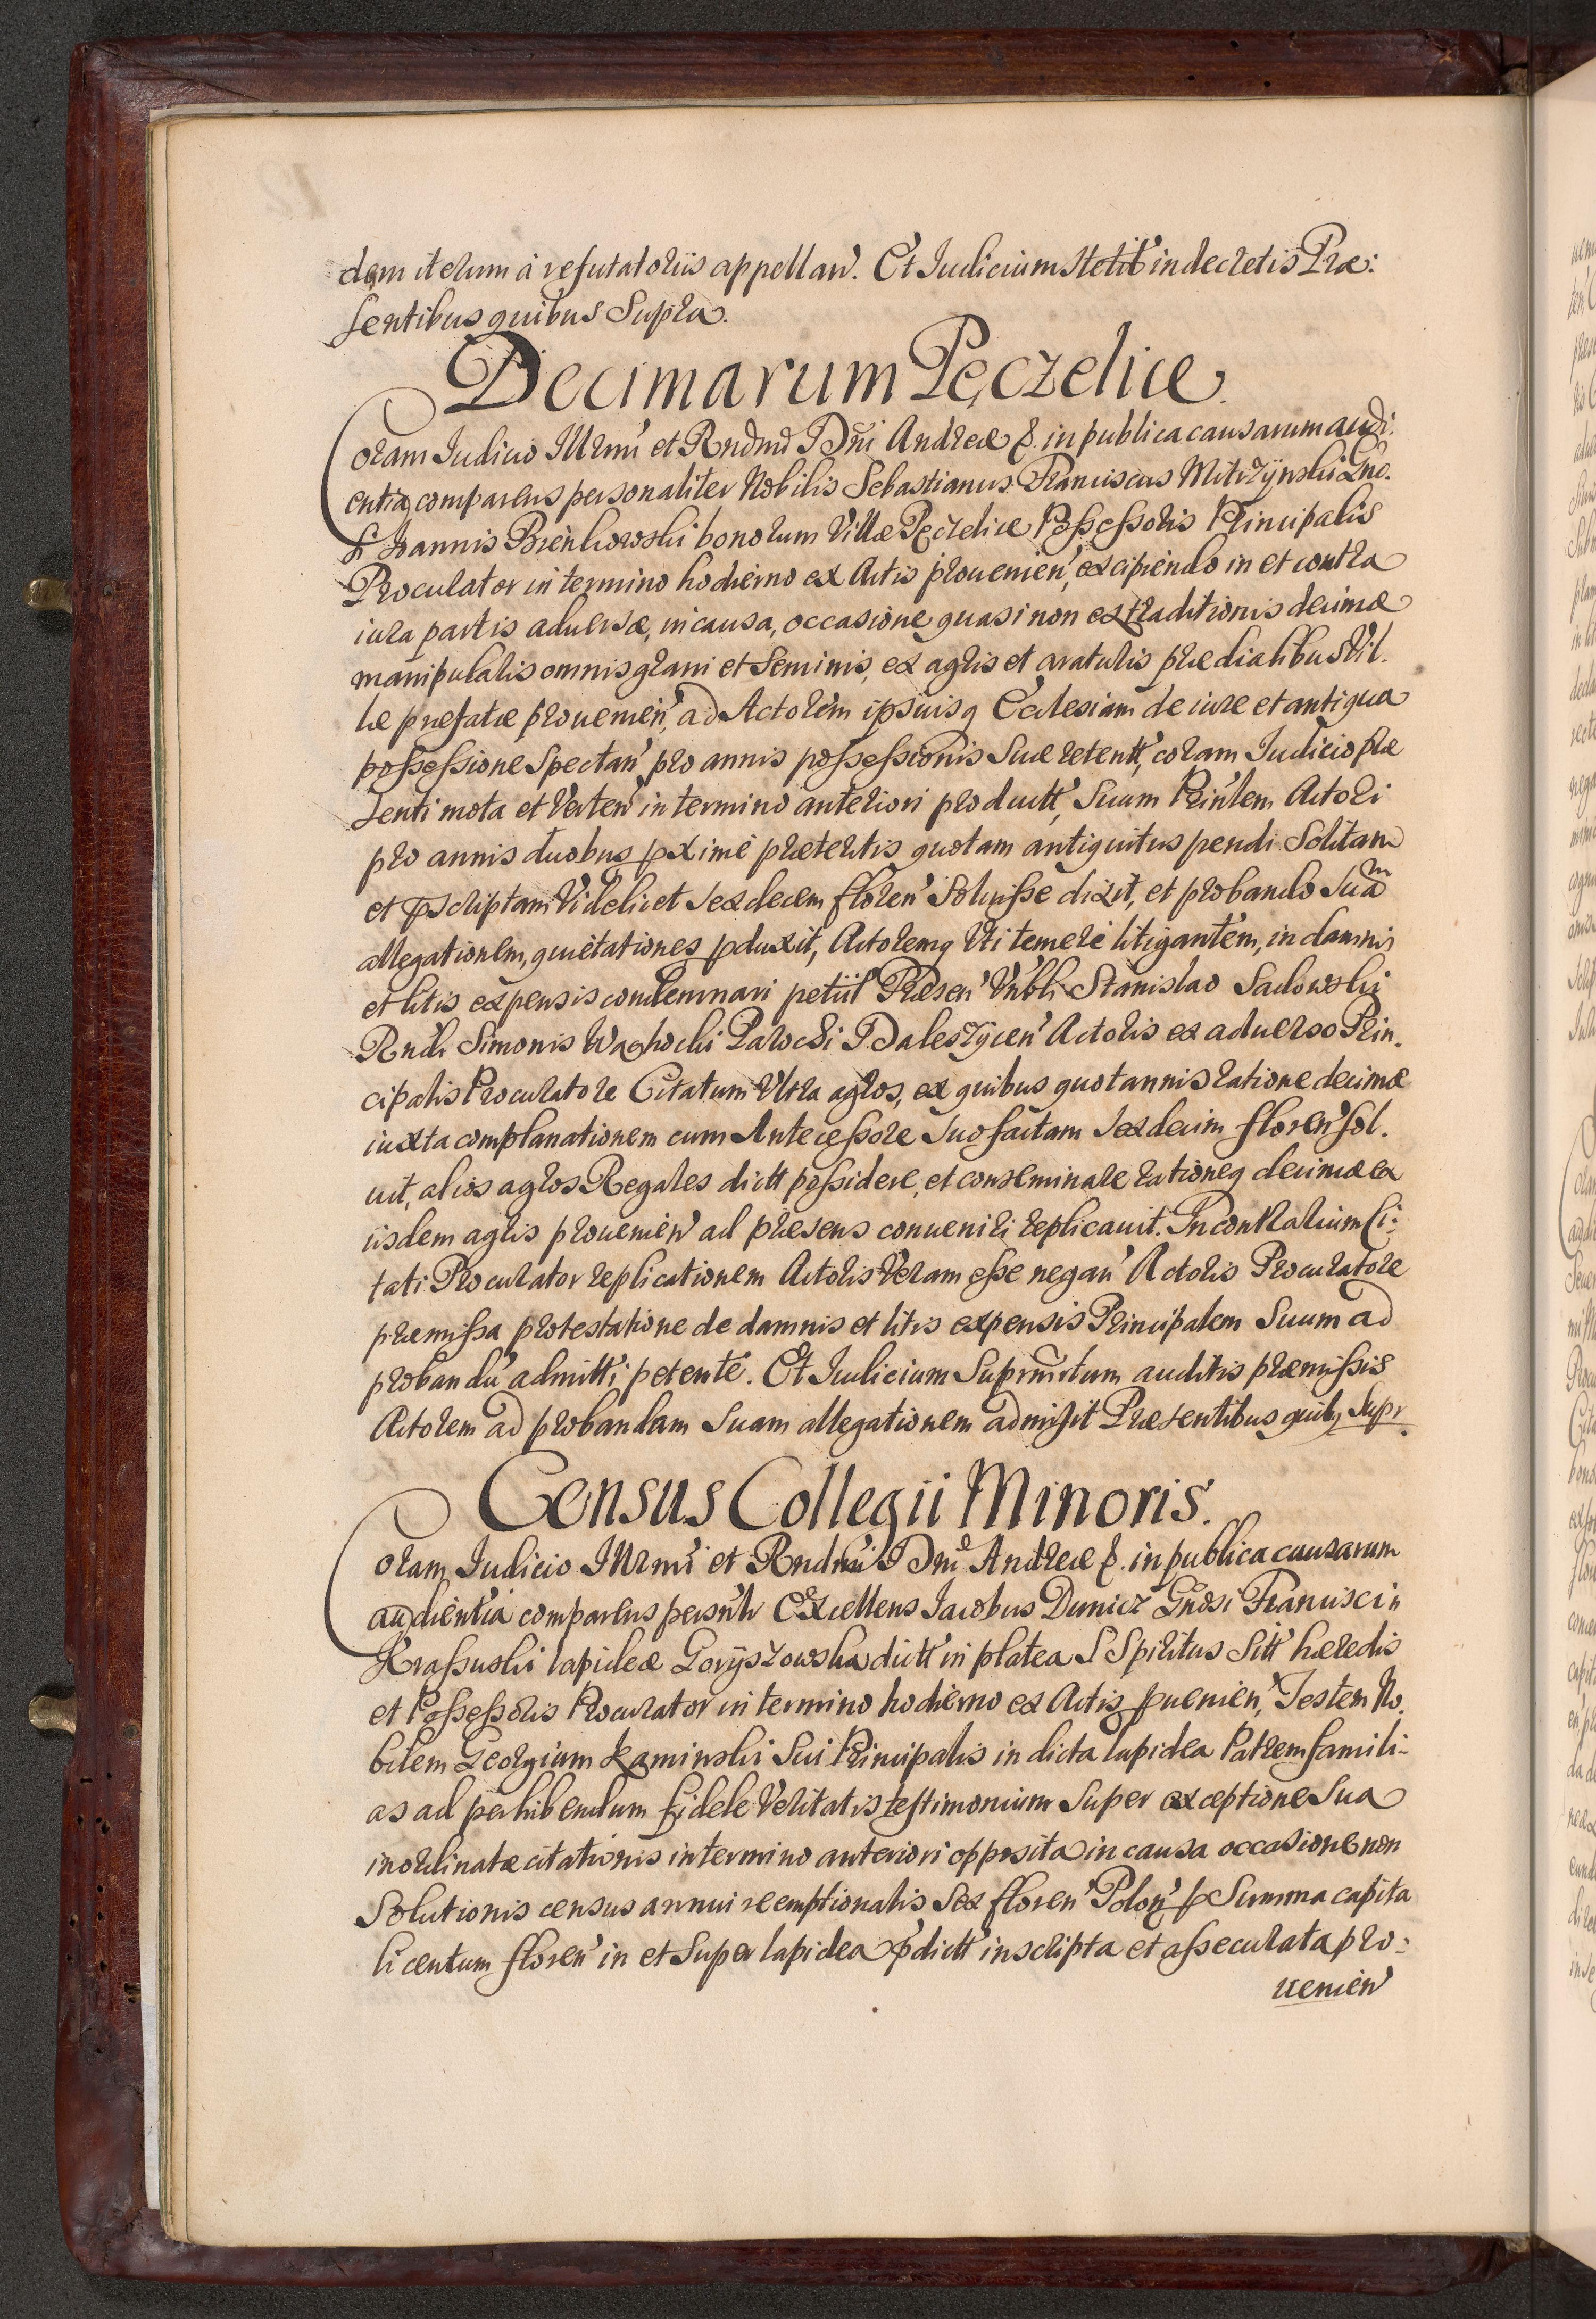 dem iterum à refutatoriis appellan̄. Et Iudicium stetit in decretis Præ:
sentibus quibus Supra.
Decimarum Pęczelice.
Coram Iudicio Illrmi et Rndmi Dni Andreæ &. in publica causarum audi:
entia comparens personaliter Nobilis Sebastianus Franciscus Mitrzÿnski Gno.
si Joannis Bieńkowski bonorum Villæ Pęczelice Possessoris Principalis
Procurator in termino hodierno ex Actis prouenien̄, excipiendo in et contra
iura partis aduersæ, in causa, occasione quasi non extraditionis decimæ
manipularis omnis grani et Seminis, ex agris et araturis prædialibus Vil.
læ præfatæ prouenien̄, ad Actorem ipsuisq Ecclesiam de iure et antiqua
possessione Spectan̄ pro annis possessionis suæ retent̄, coram Iudicio præ
senti mota et Verten̄ in termino anteriori product̄, Suum Prinlem Actori
pro annis duobus pxime præteritis quotam antiquitus pendi Solitam
et pscriptam Videlicet sexdecem floren̄ Soluisse dixit, et probando Suam
allegationem, quietationes pduxit, Actoremq Vti temere litigantem, in damnis
et litis expensis condemnari petiit Præsen̄ Vnbli Stanislao Sadowski
Rndi Simonis Wąchocki Parochi Daleszÿcen̄ Actoris ex aduerso Prin.
cipalis Procuratore Citatum Vltra agros, ex quibus quotannis ratione decimæ
iuxta complanationem cum Antecessore suo factam sexdecim floren̄ sol.
uit, alios agros Regales dict̄ possidere, et conseminare rationeq decimæ ex
iisdem agris prouenien̄ ad præsens conueniri replicauit. In contrarium Ci:
tati Procurator replicationem Actoris Veram esse negan̄ Actoris Procuratore
præmissa protestatione de damnis et litis expensis Principalem Suum ad
probandū admitti petente. Et Iudicium Suprmrtum auditis præmissis
Actorem ad probandam Suam allegationem admisit Præsentibus quib, Supr.
Census Collegii Minoris.
Coram Iudicio Illrmi et Rndmi Dni Andreæ &. in publica causarum
audientia comparens persnlr Excellens Iacobus Dunicz Gnosi Francisci
Krassuski lapideæ Gorÿszowska dict̄ in platea S Spiritus Sit̄ hæredis
et Possessoris Procurator in termino hodierno ex Actis puenien̄, Testem No.
bilem Georgium Kaminski Sui Principalis in dicta lapidea Patrem famili-
as ad perhibendum fidele Veritatis testimonium Super exceptione Sua
inordinatæ citationis in termino anteriori opposita in causa occasione non
Solutionis census annui reemptionalis Sex floren̄ Polon̄ p Summa capita
li centum floren̄ in et Super lapidea pdict̄ inscripta et asseculata pro:
uenien̄